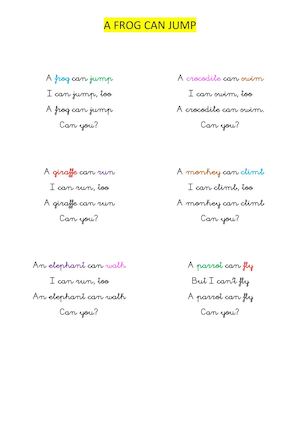 A FROG CAN JUMP
A frog can jump
I can jump, too
A frog can jump
Can you?
A crocodile can swim
I can swim, too
A crocodile can swim.
Can you?
A giraffe can run
I can run, too
A giraffe can run
Can you?
A monkey can climb
I can climb, too
A monkey can climb
Can you?
An elephant can walk
I can run, too
An elephant can walk
Can you?
A parrot can fly
But I can't fly
A parrot can fly
Can you?